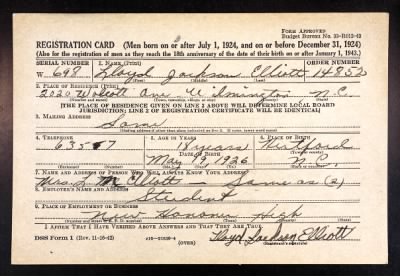 FORM APPROVED
REGISTRATION CARD (Men born on or after July 1, 1924, and on or before December 31, 1924)
(Also for the registration of men as they reach the 18th anniversary of the date of their birth on or after January 1, 1943.)
SERIAL NUMBER 1. NAME (Print) ORDER NUMBER
W 698 Lloyd Jackson Elliott 14852
2. PLACE OF RESIDENCE (Print)
2020 Wolcott Ave. Wilmington N. C.
(Number and street) (Town, township, village, or city) (County) (State)
[THE PLACE OF RESIDENCE GIVEN ON LINE 2 ABOVE WILL DETERMINE LOCAL BOARD
JURISDICTION; LINE 2 OF REGISTRATION CERTIFICATE WILL BE IDENTICAL]
3. MAILING ADDRESS
Same
4. TELEPHONE 5. AGE IN YEARS 6. PLACE OF BIRTH
18 years Hertford
DATE OF BIRTH
May 19 1926 N.C.
(Exchange) (Number) (Mo.) (Day) (Yr.) (State or country)
7. NAME AND ADDRESS OF PERSON WHO WILL ALWAYS KNOW YOUR ADDRESS
Mrs. L. M. Elliott - Same as (2)
8. EMPLOYER'S NAME AND ADDRESS
Student
9. PLACE OF EMPLOYMENT OR BUSINESS
New Hanover High
(Number and street or R. F. D. number) (Town) (County) (State)
I AFFIRM THAT I HAVE VERIFIED ABOVE ANSWERS AND THAT THEY ARE TRUE.
DSS Form 1 (Rev. 11-16-42) (OVER) Lloyd Jackson Elliott
(Registrant's signature)